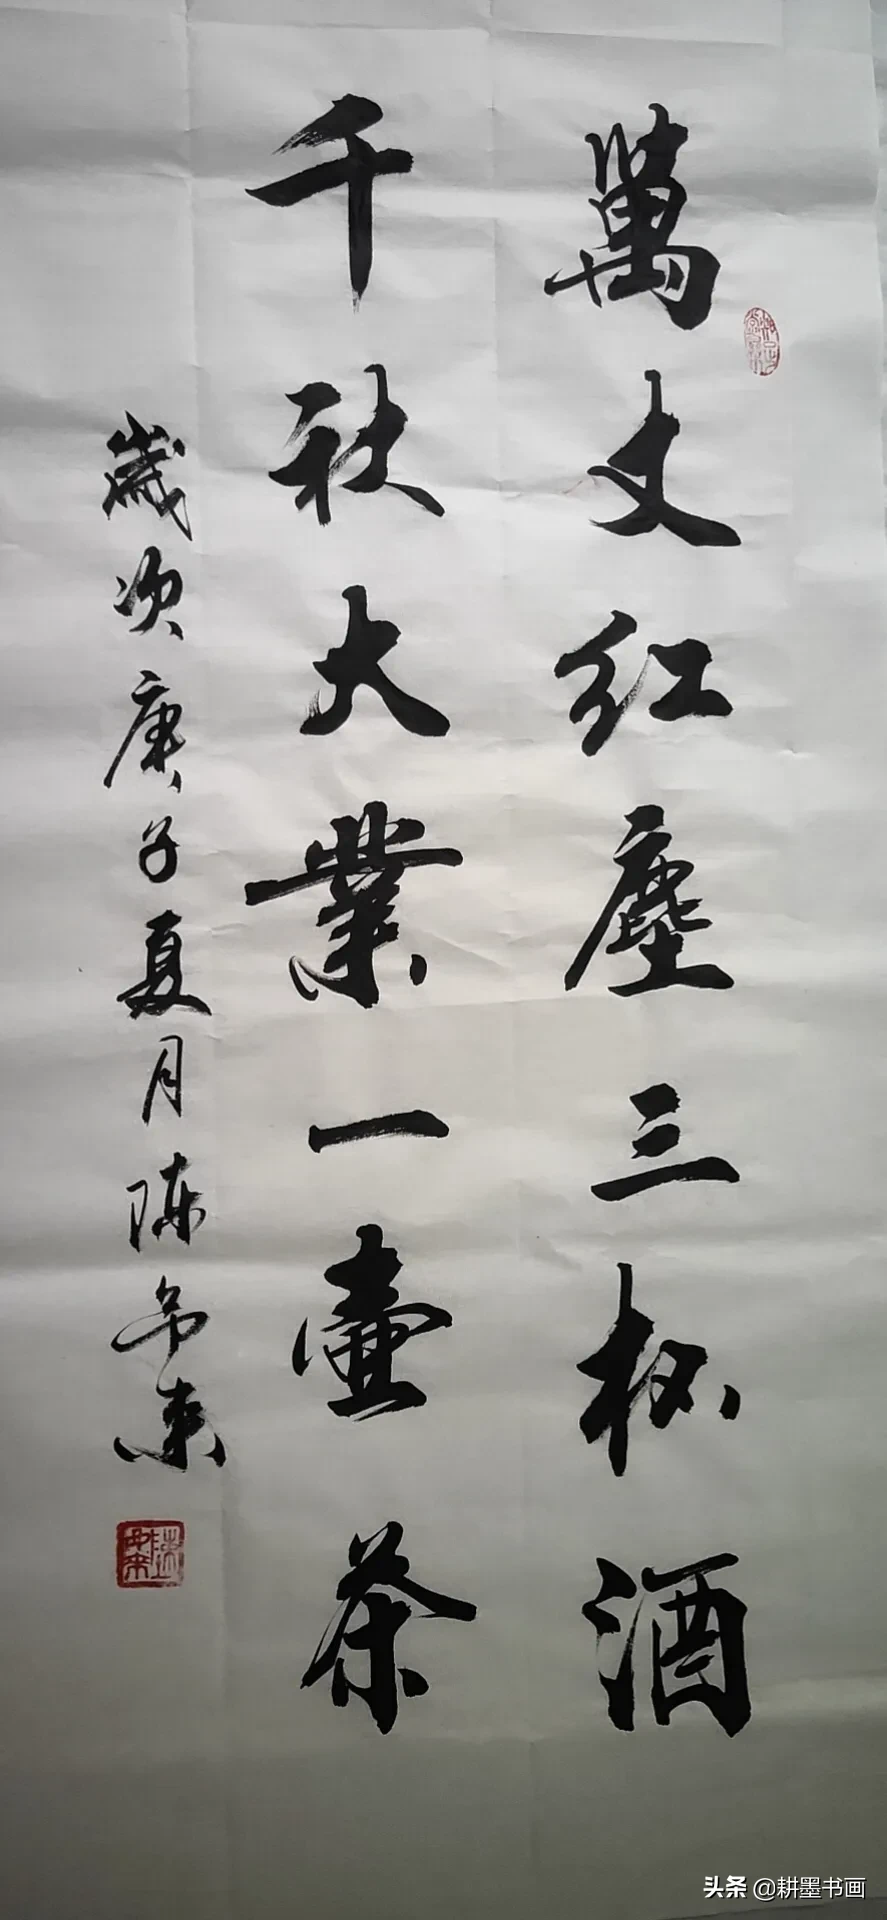 萬丈红塵三杯酒
千秋大業一壶茶
歲次庚子夏月陈
头条 @耕墨书画